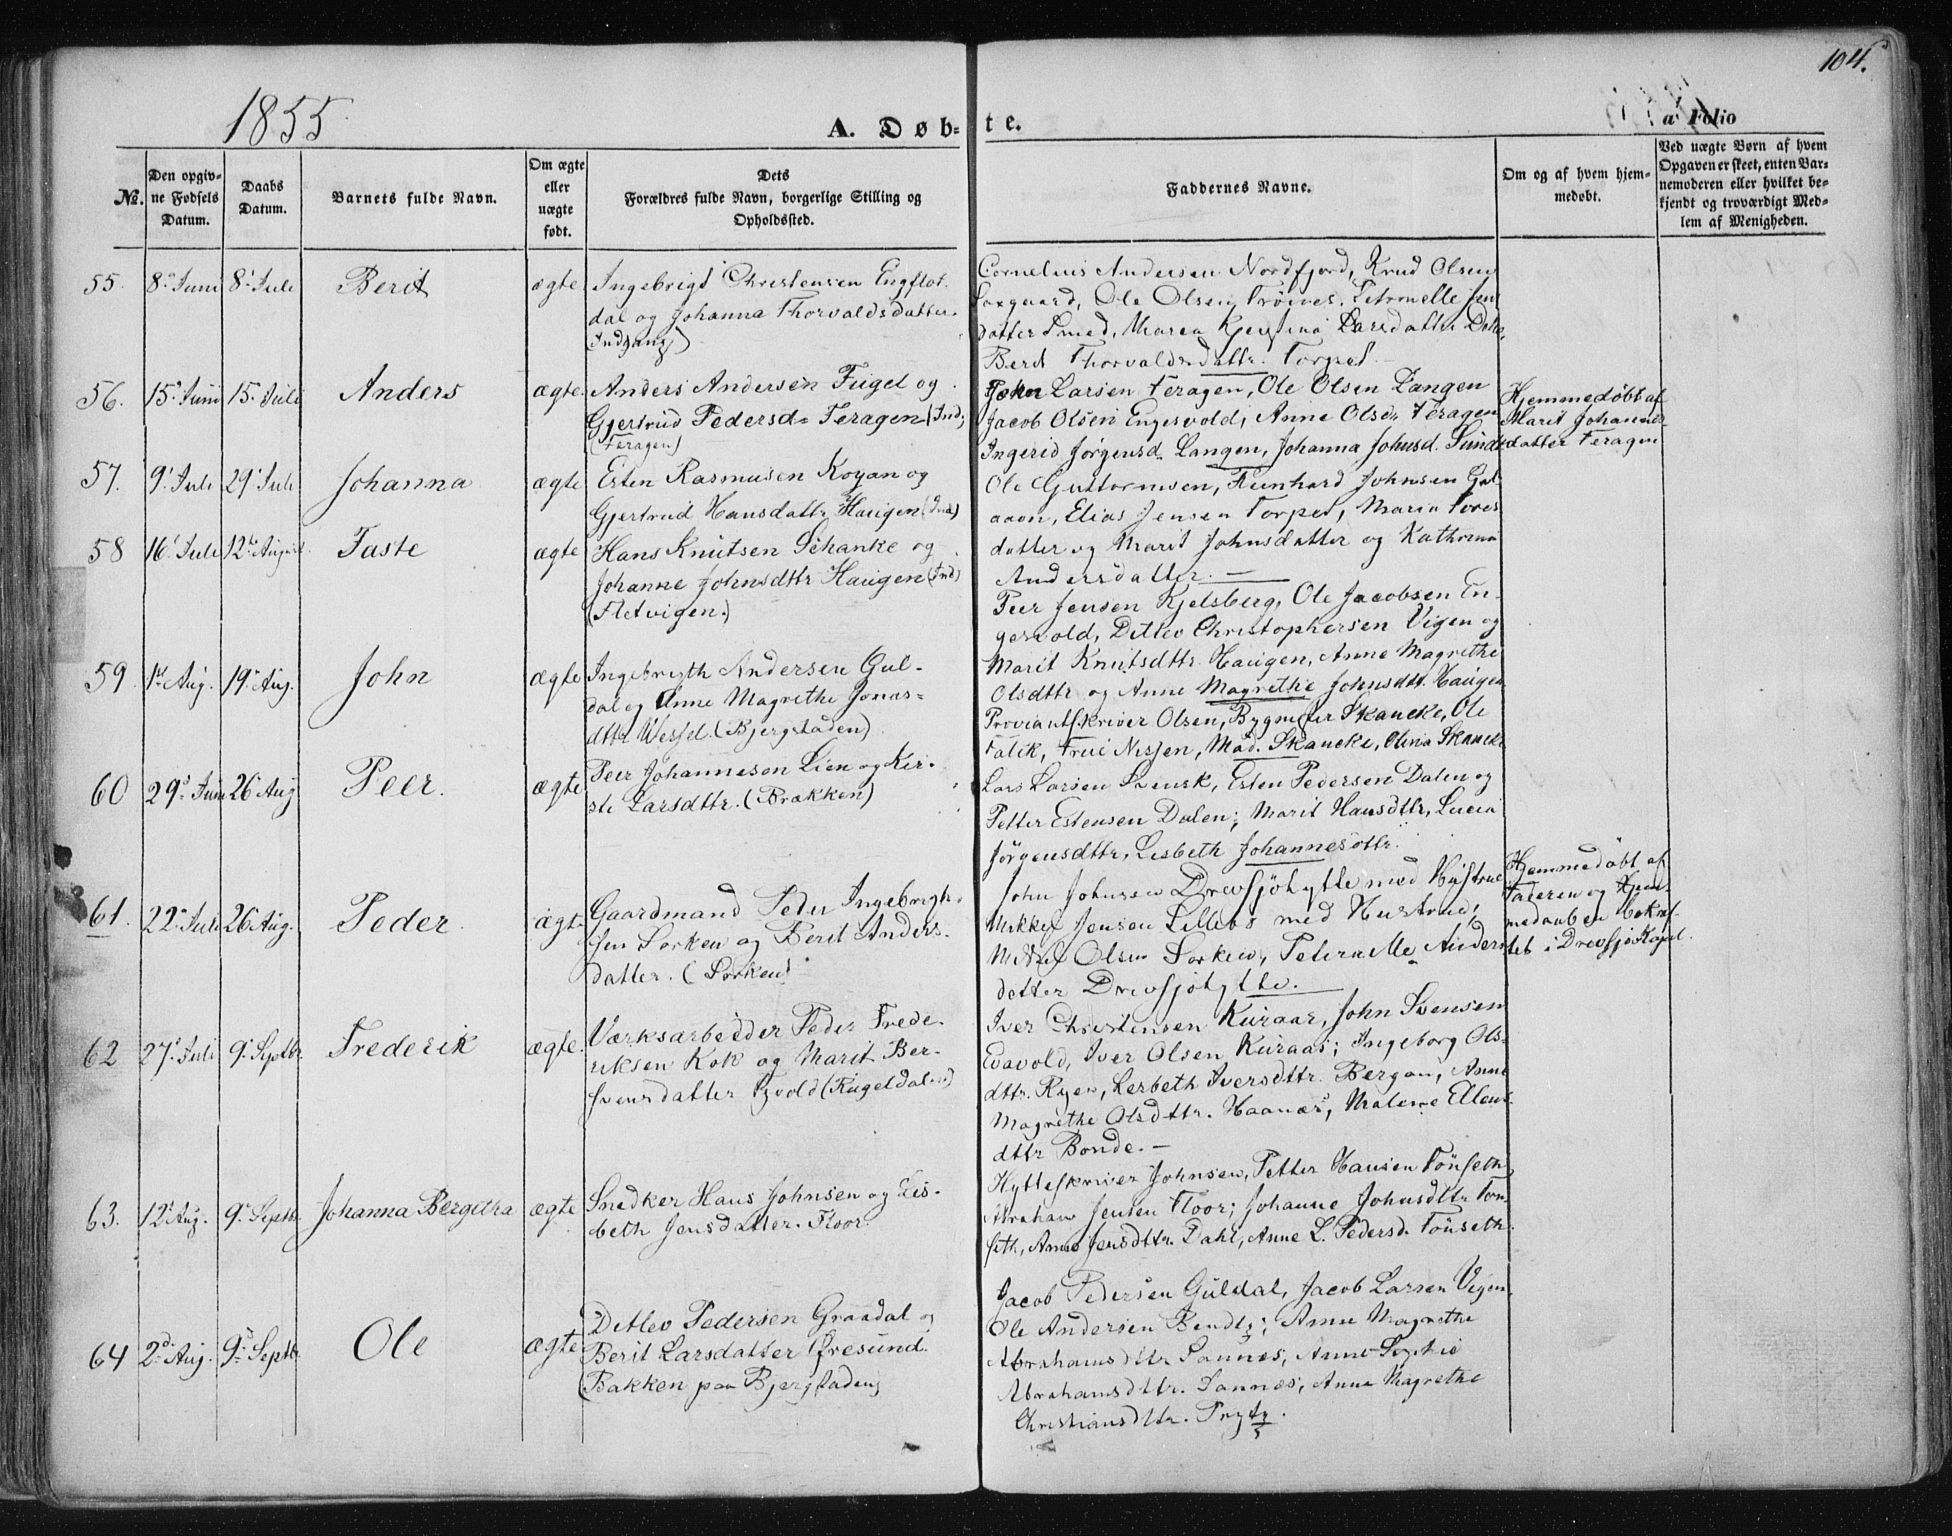 104.
1855
A. Døb-
te.
a Folio
No.
Den opgiv-
ne Fødsels
Datum.
Daabs
Datum.
Barnets fulde Navn.
Om ægte
eller
uægte
født.
Dets
Forældres fulde Navn, borgerlige Stilling og
Opholdssted.
Faddernes Navne.
Om og af hvem hjem-
medøbt.
Ved uægte Børn af hvem
Opgaven er skeet, enten Bar-
nemoderen eller hvilket be-
kjendt og troværdigt Med-
lem af Menigheden.
55. 8 Juni 8 Juli Berit ægte
Ingebrigt Christensen Engflot
dal og Johanna Thorvaldsdatter
(Indgang)
Cornelius Andersen Nordfjord, Knud Olsen
Ole Olsen Tröives, Petronelle Jens
datter Smed, Maren Larsdatter
Berit Thorvaldsdattr. Torpet.
56. 15 Juni 15 Juli Anders ægte.
Anders Andersen Fugel og
Gjertrud Pedersd= Feragen (Ind;
(Feragen)
John Larsen Feragen, Ole Olsen Langen
Jacob Olsen Engesvold, Anne Olsdr Feragen
Ingerid Jørgensd. Langen, Johanna Johnsd. Sundt
Hjemmedøbt af
Marit Johannes-
datter Feragen
57. 9 Juli 29 Juli Johanna ægte
Esten Rasmusen Kojan og
Gjertrud Hansdattr Haugen (Ind)
Ole Guttormsen, Reinhard Johnsen Gul
aaen, Elias Jensen Torpet, Maria Tores
datter og Marit Johnsdatter og Kathrina
Andersdatter. —
58 16 Juli 12te August. Taste ægte
Hans Knutsen Schanke og
Johanne Johnsdttr Haugen (Ind)
(Fletvigen.)
Peer Jensen Kjelsberg, Ole Jacobsen En-
gesvold, Ditlev Christophersen Vigen og
Marit Knutsdttr. Haugen, Anne Magrethe
Olsdttr og Anne Magrethe Johnsdttr. Haugen
59 1st Aug. 19 Aug. John ægte
Ingebrigth Andersen Gul-
dal og Anne Magrethe Jonas-
dttr Wessel. (Bjergstaden)
Proviantskriver Olsen, Bygmester Skancke, Ole
Falck, Frue Nissen, Mad. Skancke, Olina Skancke
60 29 Juni 26 Aug Peer. ægte
Peer Johannesen Lien og Kir-
ste Larsdttr. (Brækken)
Lars Larsen Svensk, Esten Pedersen Dalen og
Petter Estensen Dalen; Marit Hansdttr, Lucia
Jörgensdttr, Lisbeth Johannesdttr.
61. 22 Juli 26 Aug. Peder ægt.
Gaardmand Peder Ingebrigt-
sen Sorken og Berit Anders-
datter. (Sorken)
John Johnsen Drevsjöhytte med Hustrue
Mikkel Jensen Lillebo med Hustrue,
Olsen Sorken, Peternelle Anders
datter Drevsjöhytte.
Hjemmedøbt af
Faderen og Hjem-
medaaben bekræf
tet i Drevsjö Kapel.
62 27 Juli 9 Septbr Frederik ægte.
Værksarbeider Peder Frede-
riksen Kok og Marit Ber-
svensdatter Ryvold (Rugeldalen)
Iver Christensen Kuraas, John Svensen
Evavold, Iver Olsen Kuraas; Ingeborg Ols-
dttr. Ryen, Lisbeth Iversdttr. Bergan, Anne
Magrethe Olsdttr. Haanæs, Malene Ellens-
dttr Bonde. —
63. 12 Aug. 9 Septbr. Johanna Bergitha ægte
Snedker Hans Johnsen og Lis-
beth Jensdatter. Floor.
Hytteskriver Johnsen, Petter Hansen Tönseth
Abraham Jensen Floor; Johanne Johnsdttr Tön
seth, Anne Jensdttr. Dahl, Anne L. Pedersd. Tönseth.
64 2d Aug. 9 Septbr. Ole ægte
Ditlev Pedersen Graadal og
Berit Larsdatter Øresund.
(Bakken paa Bjergstaden)
Jacob Pedersen Guldal, Jacob Larsen Vigen,
Ole Andersen Bendtz; Anne Magrethe
Abrahamsdttr Sannes, Anne Sophie
Abrahamsdttr. Sannes, Anne Magrethe
Christiansdttr. Prytz.